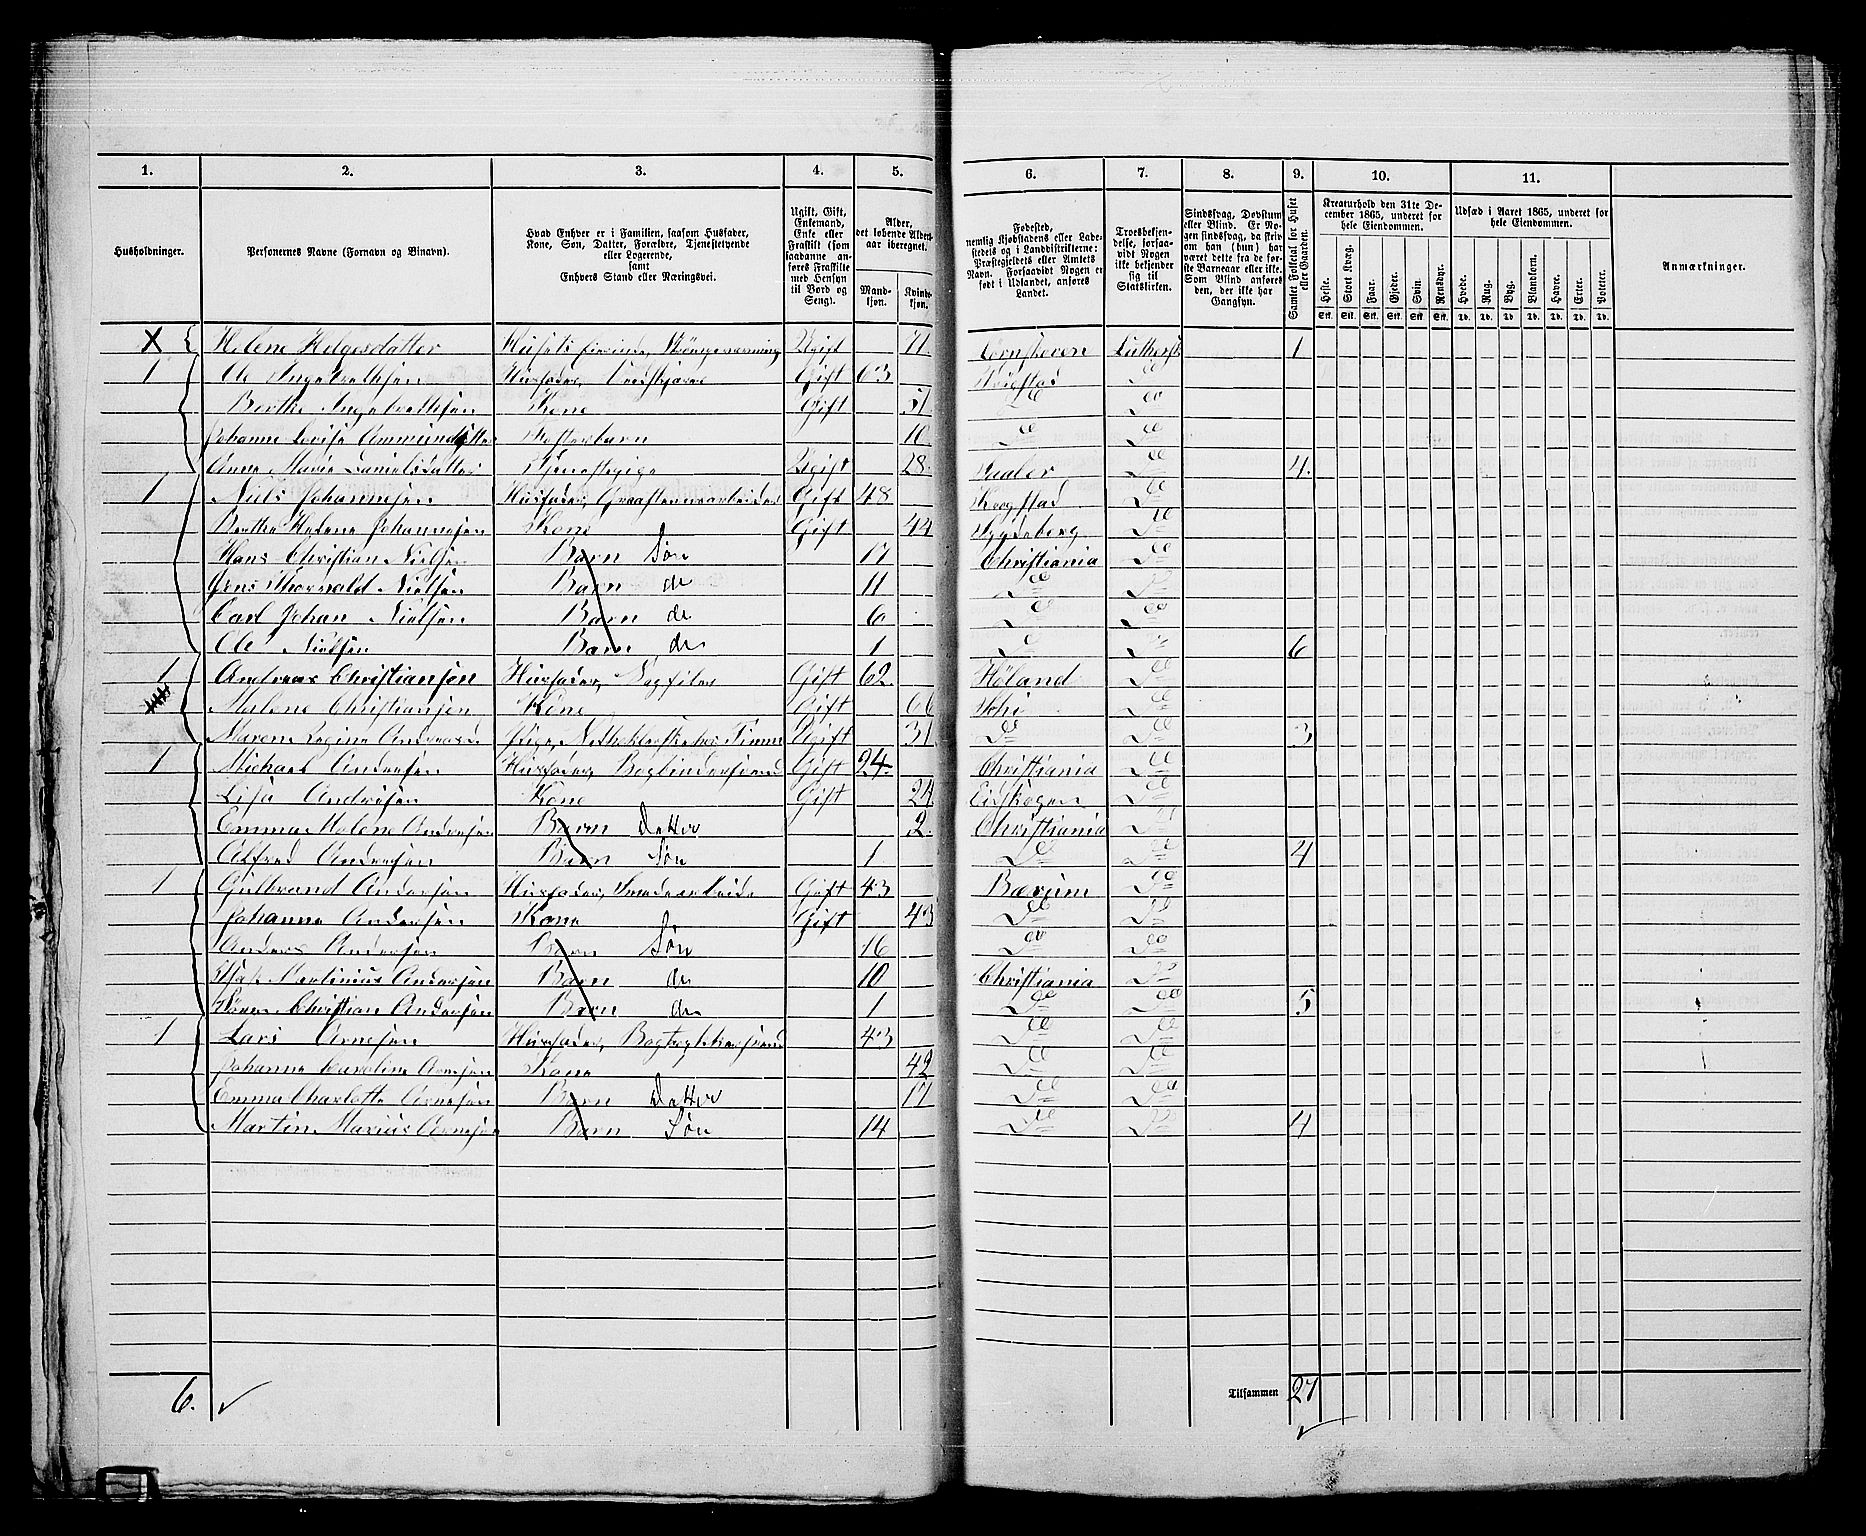 1. 2. 3. 4. 5. 6. 7. 8. 9. 10. 11.
Husholdninger.
Personernes Navne (Fornavn og Binavn).
Hvad Enhver er i Familien, saasom Husfader, Kone, Søn, Datter, Forældre, Tjenestetyende eller Logerende, samt Enhvers Stand eller Næringsvei.
Ugift, Gift, Enkemand, Enke eller Fraskilt (som saadanne anføres Fraskilte med Hensyn til Bord og Seng).
Alder, det løbende Aldersaar iberegnet.
Mandkjøn. Kvindekjøn.
Fødested, nemlig Kjøbstadens eller Ladestedets og i Landdistrikterne: Præstegjeldets eller Amtets Navn. Forsaavidt Nogen er født i Udlandet, anføres Landet.
Troesbekjendelse, forsaavidt Nogen ikke bekjender sig til Statskirken.
Sindssvag, Døvstum eller Blind. Er Nogen sindssvag, da skrives om han (hun) har været dette fra de første Barneaar eller ikke. Som Blind anføres den, der ikke har Gangsyn.
Samlet Folketal for Huset eller Gaarden.
Kreaturhold den 31te December 1865, underet for hele Eiendommen.
Heste. Stort Kvæg. Faar. Gjeder. Svin. Rensdyr.
Stk. Stk. Stk. Stk. Stk. Stk.
Udsæd i Aaret 1865, underet for hele Eiendommen.
Hvede. Rug. Byg. Blandkorn. Havre. Erter. Poteter.
Td. Td. Td. Td. Td. Td. Td.
Anmærkninger.
X Helene Helgesdatter Husets Ugift 71. Luthersk 1
1 Ole Ingebrethsen Husfader, Gift 63 Do
Berthe Ingebrethsen Kone Gift 51 Do Do
Johanne Lovise Amundsdatter Fosterbarn 10 Do Do
Anne Marie Danielsdatter Tjenestepige Ugift 28. Vaaler Do 4.
1 Niels Johannesen Husfader, Gift 48 Krogstad Do
Berthe Helene Johannesen Kone Gift 44 Do
Hans Christian Nielsen Barn Søn 17 Christiania Do
Jens Thorvald Nielsen Barn do 11 Do Do
Carl Johan Nielsen Barn do 6 Do Do
Ole Nielsen Barn do 1 Do Do 6
1 Andreas Christiansen Husfader, Sagfiler Gift 62 Høland Do
Malene Christiansen Kone Gift 66 Do
Marens Regine Pige, Ugift 31 Do Do 3
1 Michael Andersen Husfader, Bogbindersvend Gift 24. Christiania Do
Lisa Andersen Kone Gift 24 Eidskogen Do
Emma Malene Andersen Barn Datter 2. Christiania Do
Alfred Andersen Barn Søn 1 Do Do 4
1 Gulbrand Andersen Husfader, Smedearbeide Gift 43 Bærum Do
Johanne Andersen Kone Gift 43 Do Do
Anders Andersen Barn Søn 16 Do Do
Martinius Andersen Barn do 10 Christiania Do
Christian Andersen Barn do 1 Do Do 5
1 Lars Arnesen Husfader, Bogtrykkersvend 43 Do Do
Johanne Caroline Arnesen Kone 42 Do Do
Emma Charlotte Arnesen Barn Datter 17 Do Do
Martin Marius Arnesen Barn Søn 14 Do Do 4
6. Tilsammen 27